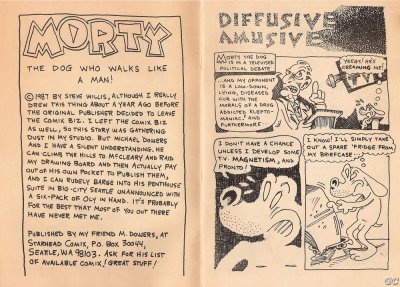 MORTY
THE DOG WHO WALKS LIKE
A MAN!
©1987 BY STEVE WILLIS, ALTHOUGH I REALLY
DREW THIS THING ABOUT A YEAR AGO BEFORE
THE ORIGINAL PUBLISHER DECIDED TO LEAVE
THE COMIX BIZ. I LEFT THE COMIX BIZ
AS WELL, SO THIS STORY WAS GATHERING
DUST IN MY STUDIO. BUT MICHAEL DOWERS AND
I HAVE A SILENT UNDERSTANDING. HE
CAN CLIMB THE HILLS TO MCCLEARY AND RAID
MY DRAWING BOARD AND THEN ACTUALLY PAY
OUT OF HIS OWN POCKET TO PUBLISH THEM,
AND I CAN RUDELY BARGE INTO HIS PENTHOUSE
SUITE IN BIG-CITY SEATTLE UNANNOUNCED WITH
A SIX-PACK OF OLY IN HAND. IT'S PROBABLY
FOR THE BEST THAT MOST OF YOU OUT THERE
HAVE NEVER MET ME.
PUBLISHED BY MY FRIEND M. DOWERS, AT
STARHEAD COMIX, P.O. BOX 30044,
SEATTLE, WA 98103. ASK FOR HIS LIST
OF AVAILABLE COMIX! GREAT STUFF!
DIFFUSIVE
AMUSIVE
MORTY THE DOG
IS IN A TELEVISED
POLITICAL DEBATE
...AND MY OPPONENT
IS A LOW-DOWN,
LYING, DISEASED
CUR WITH THE
MORALS OF A DRUG
ADDICTED KLEPTO-
MANIAC! AND
FURTHERMORE
YEEGS! HE'S
CREAMING ME!
I DON'T HAVE A CHANCE
UNLESS I DEVELOP SOME
T.V. MAGNETISM, AND
PRONTO!
I KNOW! I'LL SIMPLY TAKE
OUT A SPARE 'FRIDGE FROM
MY BRIEFCASE.